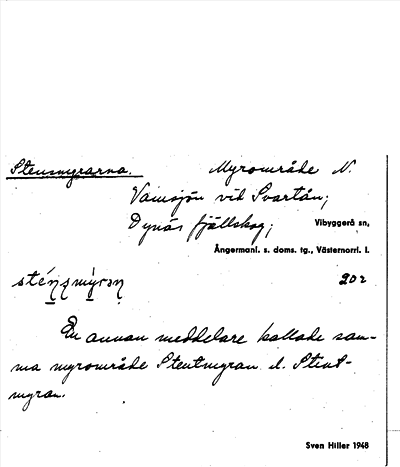 Stensmyrarna. Myrområde N.
Vamsjön vid Svartån;
Dynäs fjällskog; Vibyggerå sn,
Ångermanl. s. doms. tg., Västernorrl. l.
202
En annan meddelare kallade sam-
ma myrområde Stentmyran el. Stint-
myran.
Sven Hiller 1948